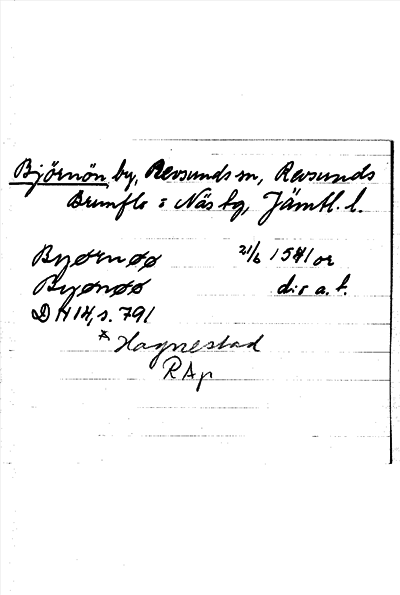 Björnön, by, Revsunds sn, Revsunds
Brunflo o Näs tg, Jämtl. l.
Byørnøø 21/6 1541 or
Byønøø dir a. t.
DN 14, s. 791
* Hagnestad
RAp